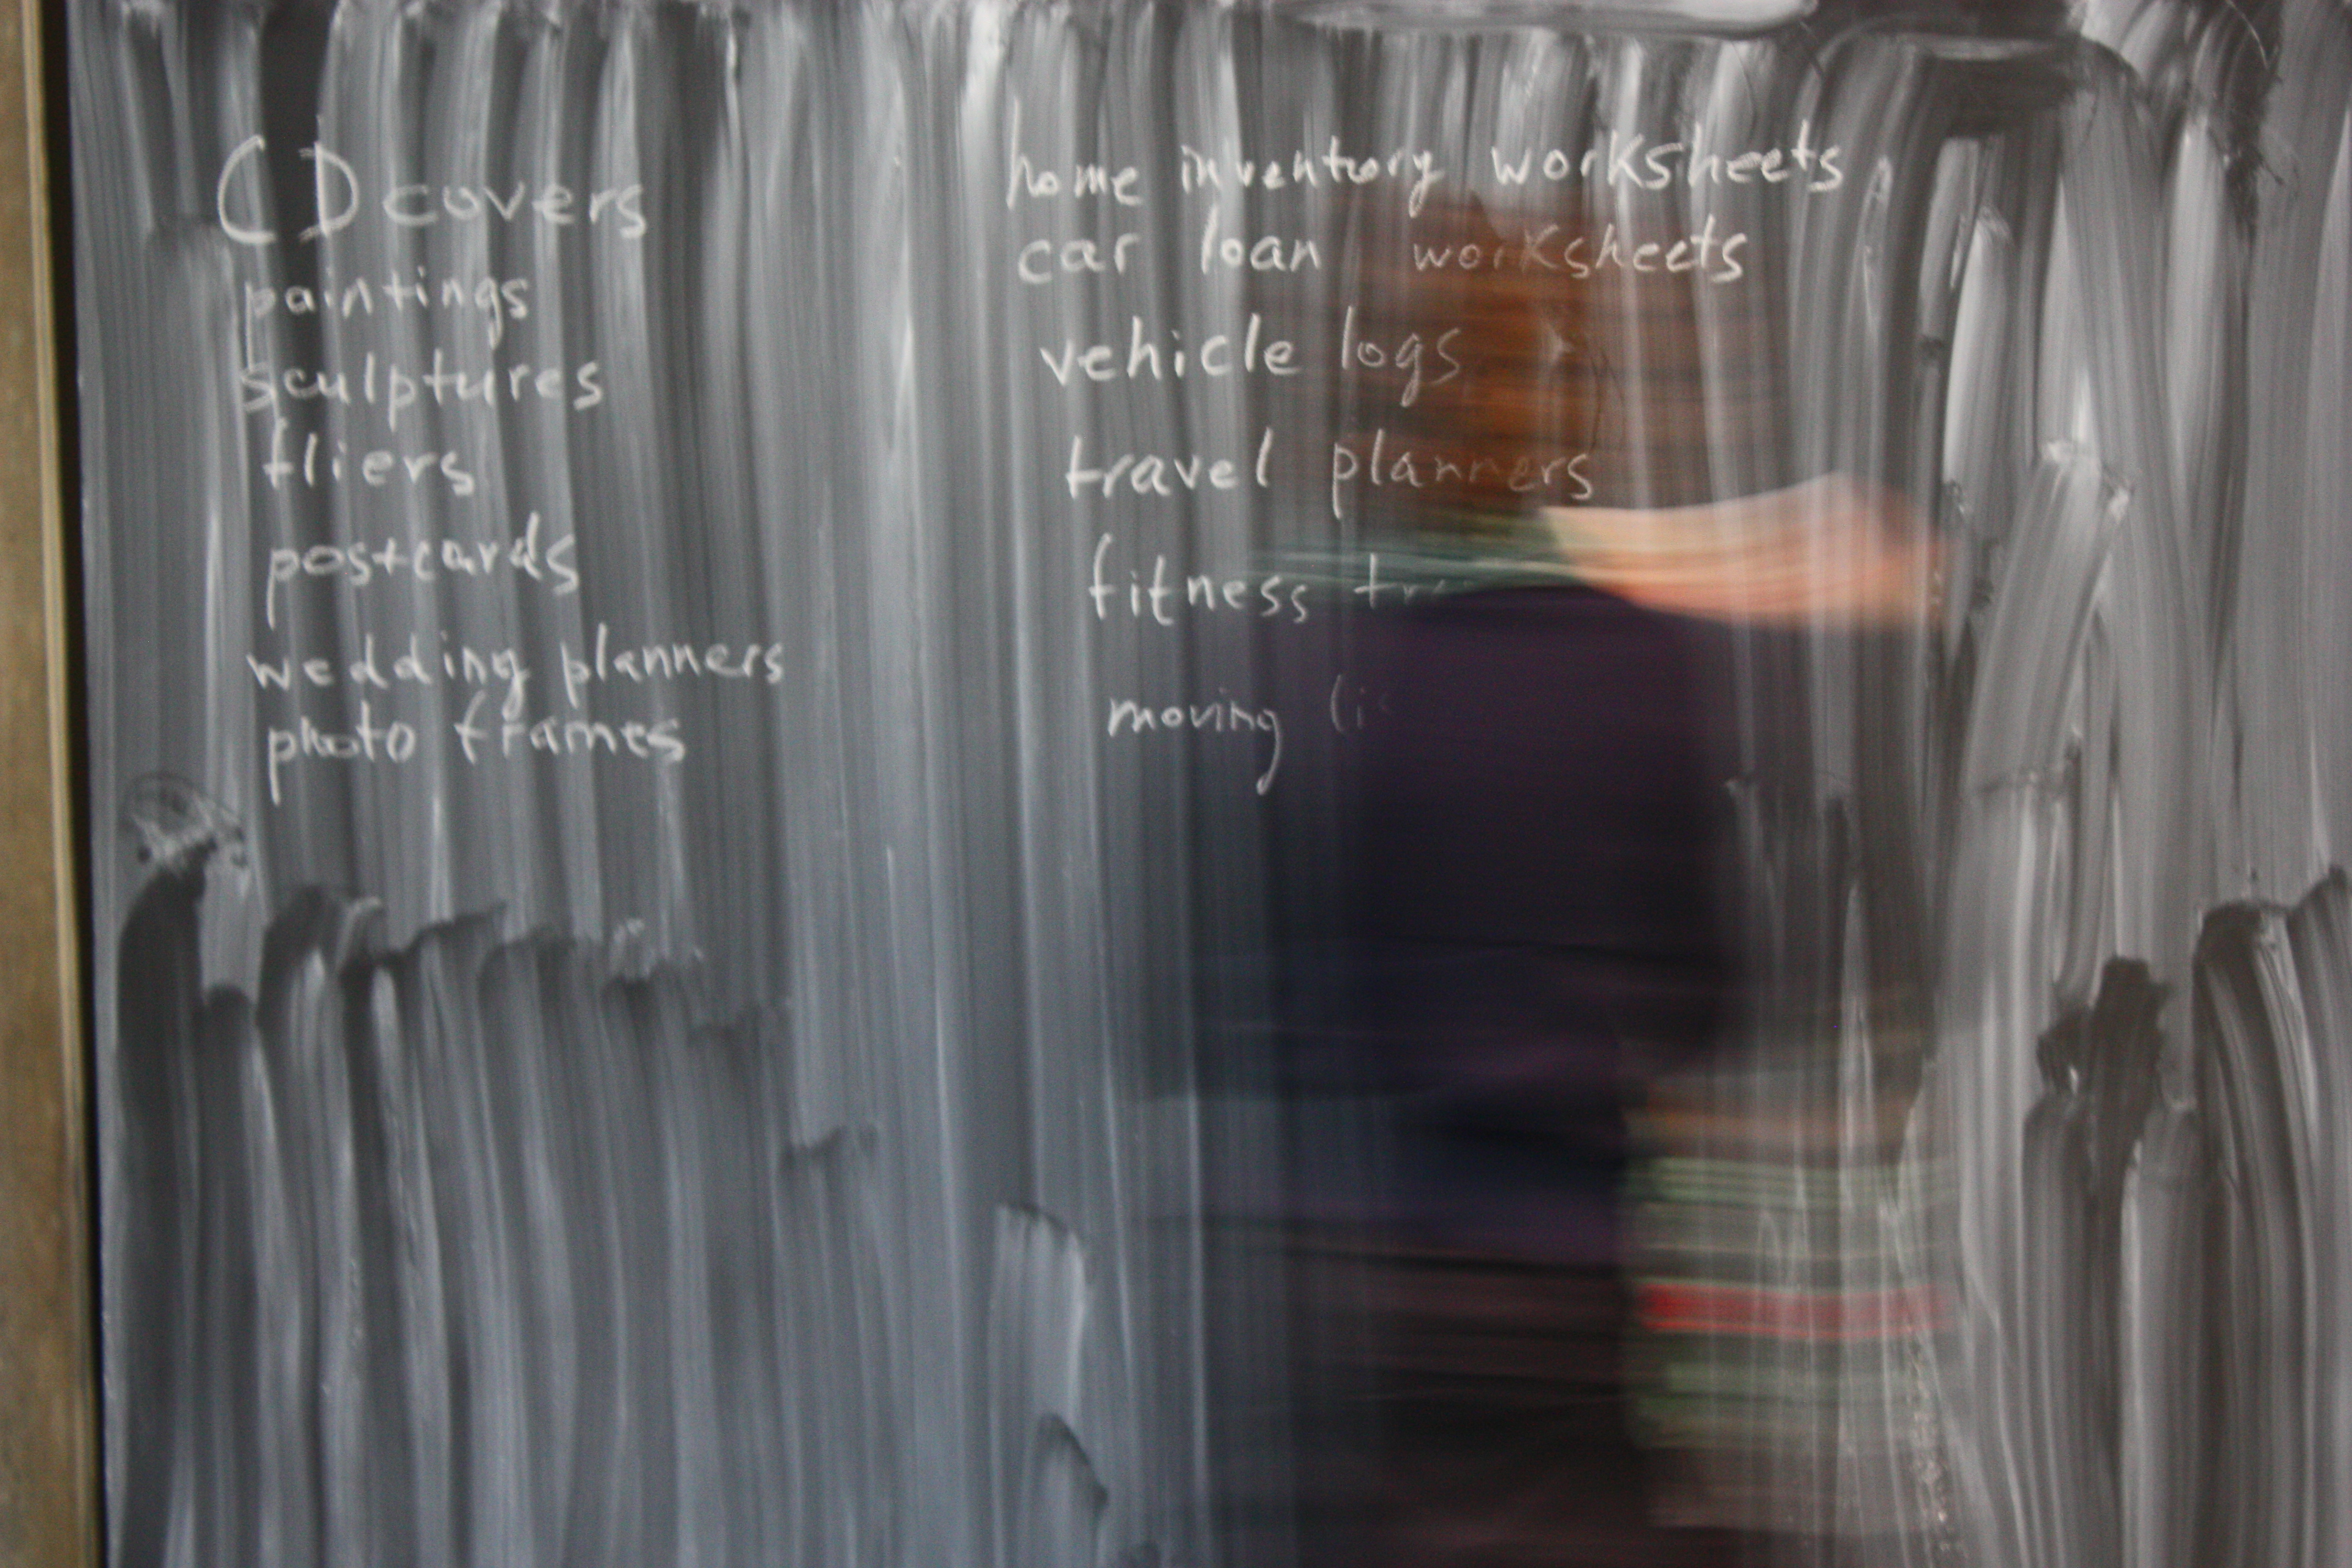 CD covers
paintings
sculptures
fliers
postcards
wedding planners
photo frames
home inventory worksheets
car loan worksheets
vehicle logs
travel planners
fitness
moving